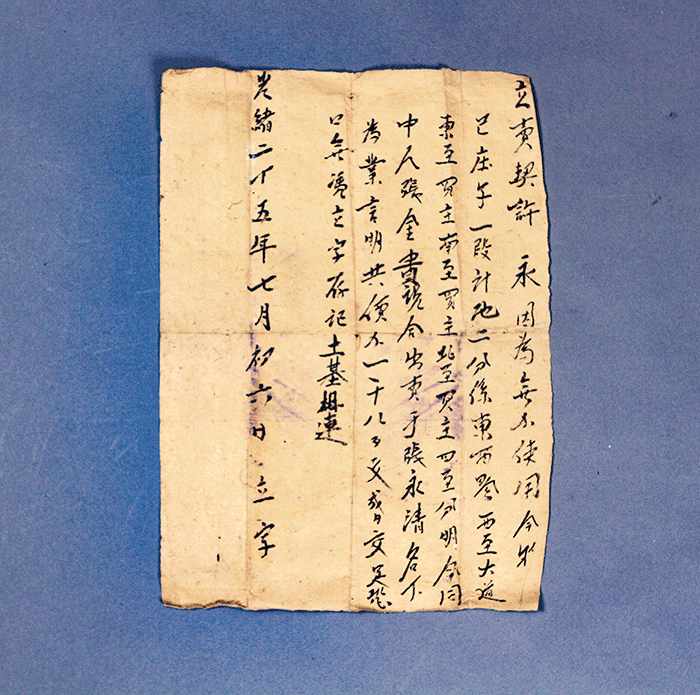 立賣契許 永因為無不使用今將
己庄子一段計地二分係東西畛西至大道
東至買主南至買主北至買主四至分明今同
中人張金書說合出賣于張永清名下
為業言明共價不一千八百文當日交足恐
口無憑立字存記土基相連
光緒二十五年七月初六日 立字